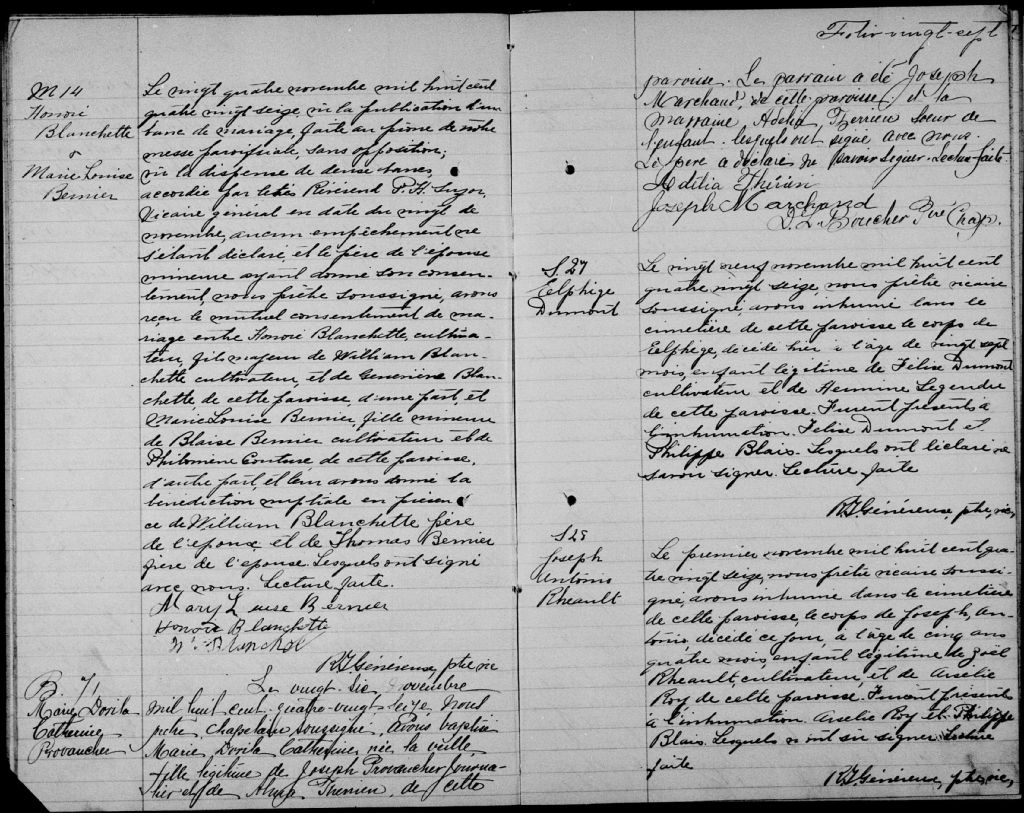 M 14
Honoré
Blanchette
&
Marie Louise
Bernier
Le vingt quatre novembre mil huit cent
quatre vingt seize, vu la publication d'un
banc de mariage, faite au prône de notre
messe paroissiale, sans opposition;
vu la dispense de deux bancs,
accordée par le Révérend P. H. Suzor,
Vicaire général en date du vingt de
novembre, aucun empêchement ne
s'étant déclaré, et le père de l'épouse
mineure ayant donné son consen-
tement, nous prêtre soussigné, avons
reçu le mutuel consentement de ma-
riage entre Honoré Blanchette, cultiva-
teur, fils majeur de William Blan-
chette cultivateur, et de Geneviève Blan-
chette de cette paroisse, d'une part, et
Marie Louise Bernier, fille mineure
de Blaise Bernier cultivateur et de
Philomène Couture de cette paroisse,
d'autre part, et leur avons donné la
bénédiction nuptiale en présen-
ce de William Blanchette père
de l'époux et de Thomas Bernier
père de l'épouse. Lesquels ont signé
avec nous. Lecture faite.
Mary L uise Bernier
Honoré Blanchette
W. Blanchet
R. J. Généreux, ptre, vic
B. 71
Marie Dorila
Catherine
Provancher
Le vingt-six novembre
mil huit cent quatre-vingt seize Nous
prêtre chapelain soussigné Avons baptisé
Marie Dorila Catherine née la veille
fille légitime de Joseph Provancher Journa-
lier et de Therrien de cette
Folio vingt-sept
paroisse. Le parrain a été Joseph
Marchand, de cette paroisse, et la
marraine, Adelia Therrien soeur de
l'enfant. lesquels ont signé avec nous.
Le père a déclaré ne savoir signer. Lecture faite
Adélia Thérien
Joseph Marchand
D. L. Boucher Ptre Chap.
S. 27
Elphège
Dumont
Le vingt neuf novembre mil huit cent
quatre vingt seize, nous prêtre vicaire
soussigné, avons inhumé dans le
cimetière de cette paroisse le corps de
Elphège, décédé hier à l'âge de vingt sept
mois, enfant légitime de Félix Dumont
cultivateur et de Hermine Legendre
de cette paroisse. Furent présents à
l'inhumation. Félix Dumont et
Philippe Blais. Lesquels ont déclaré ne
savoir signer. Lecture faite
R. J. Généreux, ptre, vic,
S 28
Joseph
Antonio
Rheault
Le premier novembre mil huit cent qua-
tre vingt seize, nous prêtre vicaire soussi-
gné, avons inhumé dans le cimetière
de cette paroisse, le corps de Joseph, An-
tonio, décédé ce jour, à l'âge de cinq ans
quatre mois, enfant légitime de Joël
Rheault cultivateur, et de Arselie
Roy de cette paroisse. Furent présents
à l'inhumation. Arselie Roy et Philippe
Blais. Lesquels n'ont su signer. Lecture
faite
R. J. Généreux, ptre, vic,